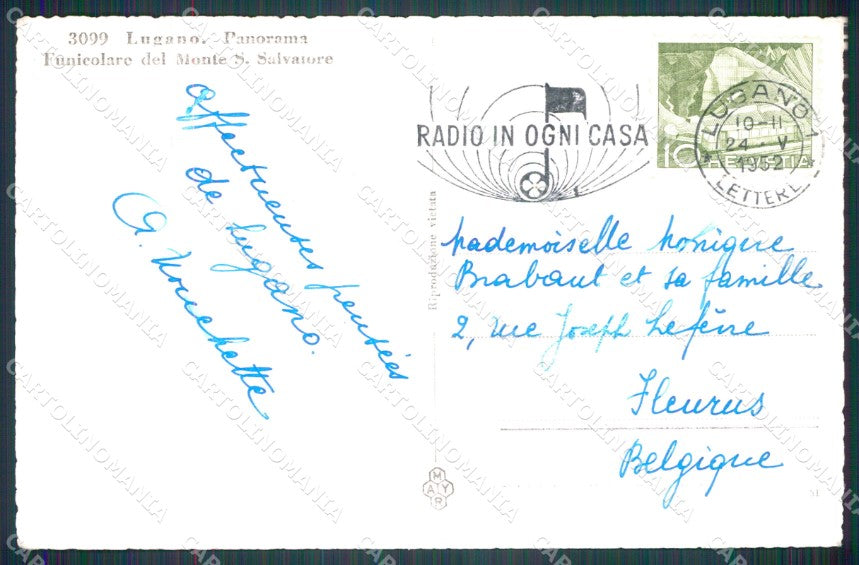 3099 Lugano. Panorama
Funicolare del Monte S. Salvatore
Affectueuses pensées
de Lugano.
RADIO IN OGNI CASA
LUGANO 1
10-11
24 · V
1952
LETTERE
10 HELVETIA
Riproduzione vietata
Mademoiselle Monique
Brabant et sa famille
2, rue Joseph Lefèvre
Fleurus
Belgique
MAYR
51
CARTOLINOMANIA